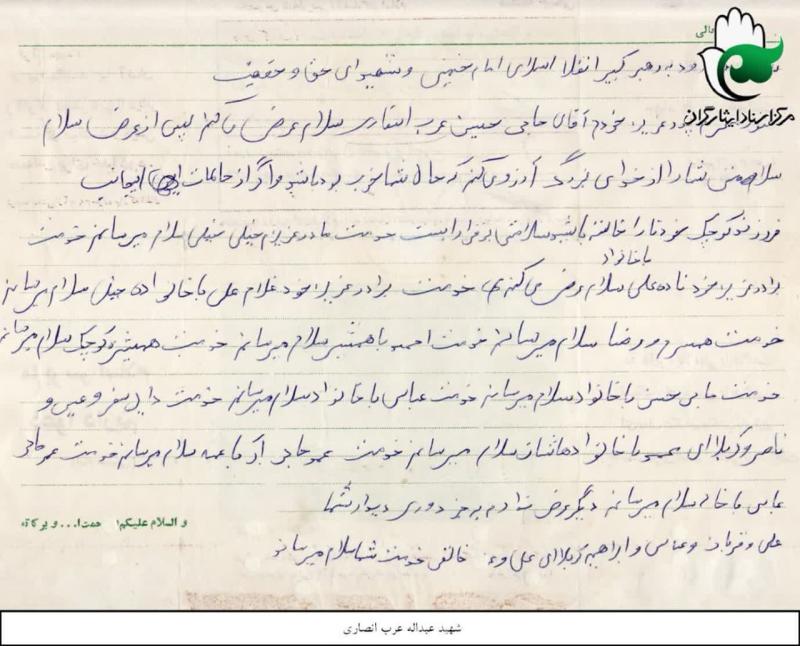 عالی
مرکز اسناد ایثارگران
درود به رهبر کبیر انقلاب اسلامی امام خمینی و شهیدای حق و حقیقت
پدر عزیز خودم آقای حاجی حسین عرب انصاری سلام عرض می کنم پس از عرض سلام
سلامتی شما را از خدای بزرگ آرزوی کنم که حال شما خوب بوده باشد و اگر از حالات اینجانب
فرزند کوچک خودتان را خواسته باشید سلامتی برقرار است خدمت مادر عزیزم خیلی خیلی سلام میرسانم خدمت
با خانواده
برادر عزیز خود علی سلام عرض می کنم خدمت برادر عزیز خود غلام علی با خانواده خیلی سلام میرسانم
خدمت همسرم و رضا سلام میرسانم خدمت احمد با همشیره سلام میرسانم خدمت همشیره کوچک سلام میرسانم
خدمت حسن با خانواد سلام میرسانم خدمت عباس با خانواد سلام میرسانم خدمت دایی و
ناصر و کربلای با خانوادهاشان سلام میرسانم خدمت عمو سلام میرسانم خدمت
عباس با سلام میرسانم دیگر عرض ندارم به جز دوری دیدار شما
و السلام علیکم و برکاته
علی و قربان و عباس و ابراهیم کربلای علی خدمت شما سلام میرسانند
شهید عبداله عرب انصاری